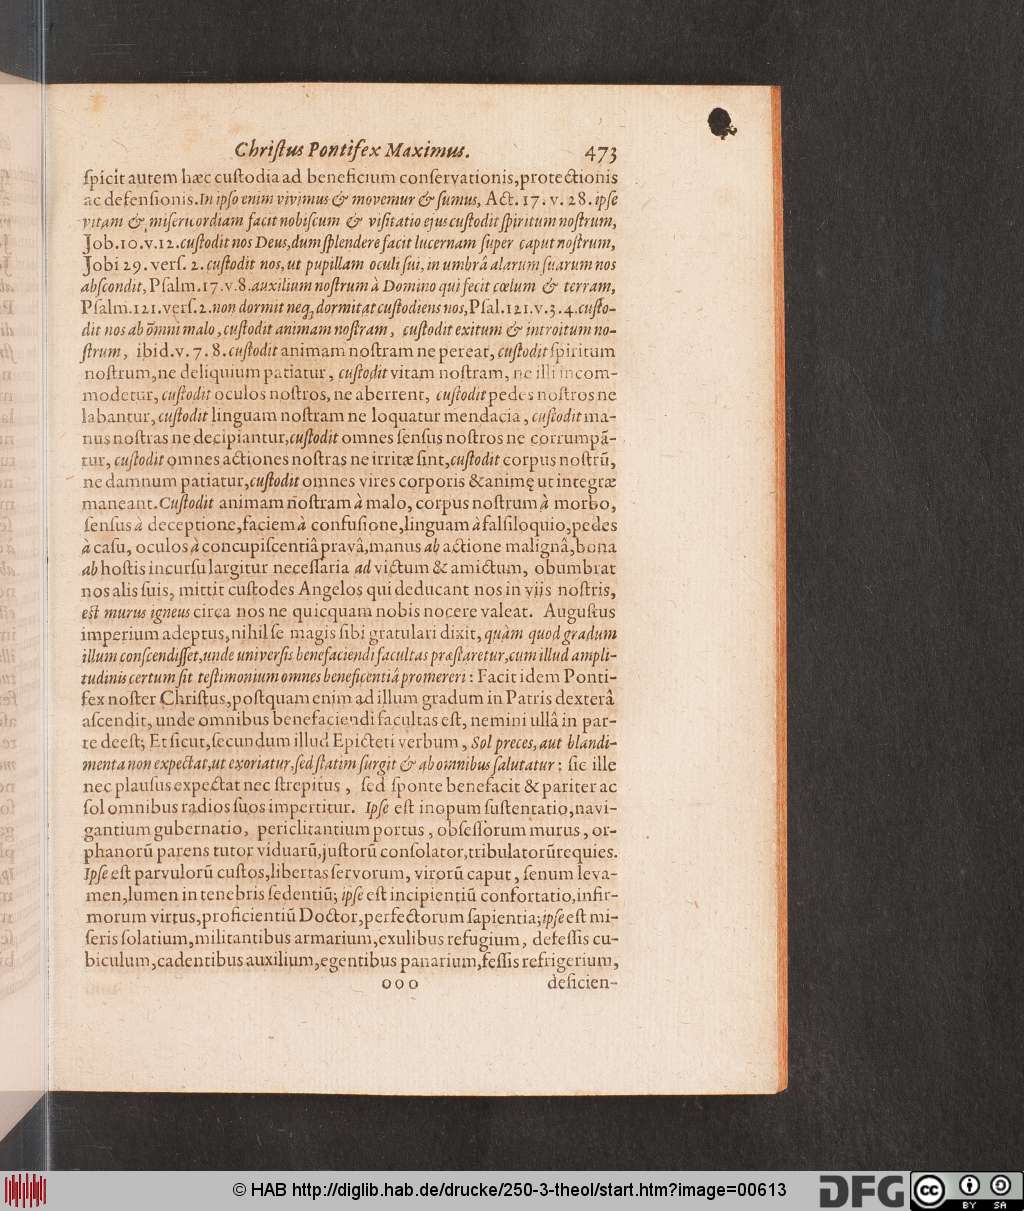 Chriſtus Pontifex Maximus. 473
ſpicit autem hæc cuſtodia ad beneficium conſervationis,protectionis
ac defenſionis.In ipſo enim vivimus & movemur & ſumus, Act. 17. v. 28. ipſe
vitam & miſericordiam facit nobiſcum & viſitatio ejus cuſtodit ſpiritum noſtrum,
Job.10.v.12.cuſtodit nos Deus,dum ſplendere facit lucernam ſuper caput noſtrum,
Jobi 29. verſ. 2. cuſtodit nos, ut pupillam oculi ſui, in umbrâ alarum ſuarum nos
abſcondit, Pſalm.17.v.8.auxilium noſtrum à Domino qui fecit cœlum & terram,
Pſalm.121.verſ.2.non dormit neq; dormitat cuſtodiens nos,Pſal.121.v.3.4.cuſto-
dit nos ab om̄ni malo, cuſtodit animam noſtram, cuſtodit exitum & introitum no-
ſtrum, ibid.v. 7. 8. cuſtodit animam noſtram ne pereat, cuſtodit ſpiritum
noſtrum,ne deliquium patiatur, cuſtodit vitam noſtram, ne illi incom-
modetur, cuſtodit oculos noſtros, ne aberrent, cuſtodit pedes noſtros ne
labantur, cuſtodit linguam noſtram ne loquatur mendacia, cuſtodit ma-
nus noſtras ne decipiantur,cuſtodit omnes ſenſus noſtros ne corrumpã-
tur, cuſtodit omnes actiones noſtras ne irritæ ſint,cuſtodit corpus noſtrũ,
ne damnum patiatur,cuſtodit omnes vires corporis &animę ut integræ
maneant.Cuſtodit animam noſtram à malo, corpus noſtrum à morbo,
ſenſus à deceptione,faciem à confuſione,linguam à falſiloquio,pedes
à caſu, oculos à concupiſcentiâ pravâ,manus ab actione malignâ,bona
ab hoſtis incurſu largitur neceſſaria ad victum & amictum, obumbrat
nos alis ſuis, mittit cuſtodes Angelos qui deducant nos in viis noſtris,
eſt murus igneus circa nos ne quicquam nobis nocere valeat. Auguſtus
imperium adeptus,nihil ſe magis ſibi gratulari dixit, quàm quod gradum
illum conſcendiſſet,unde univerſis benefaciendi facultas præſtaretur,cum illud ampli-
tudinis certum ſit teſtimonium omnes beneficentiâ promereri : Facit idem Ponti-
fex noſter Chriſtus,poſtquam enim ad illum gradum in Patris dexterâ
aſcendit, unde omnibus benefaciendi facultas eſt, nemini ullâ in par-
te deeſt; Et ſicut,ſecundum illud Epicteti verbum, Sol preces, aut blandi-
menta non expectat,ut exoriatur,ſed ſtatim ſurgit & ab omnibus ſalutatur : ſic ille
nec plauſus expectat nec ſtrepitus, ſed ſponte benefacit & pariter ac
ſol omnibus radios ſuos impertitur. Ipſe eſt inopum ſuſtentatio,navi-
gantium gubernatio, periclitantium portus, obſeſſorum murus, or-
phanorũ parens tutor viduarũ,juſtorũ conſolator,tribulatorũ requies.
Ipſe eſt parvulorũ cuſtos,libertas ſervorum, virorũ caput, ſenum leva-
men,lumen in tenebris ſedentiũ; ipſe eſt incipientiũ confortatio,infir-
morum virtus,proficientiũ Doctor,perfectorum ſapientia;ipſe eſt mi-
ſeris ſolatium,militantibus armarium,exulibus refugium, defeſſis cu-
biculum,cadentibus auxilium,egentibus panarium,feſſis refrigerium,
ooo deficien-
© HAB http://diglib.hab.de/drucke/250-3-theol/start.htm?image=00613
DFG
cc BY SA